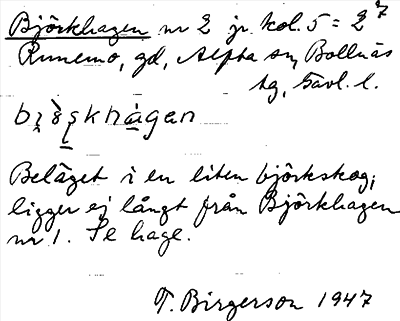 Björkhagen nr 2 jr. kol. 5 = 2⁷
Runemo, gd, Alfta sn, Bollnäs
tg, Gävl. l.
Beläget i en liten björkskog;
ligger ej långt från Björkhagen
nr 1. Se hage.
T. Birgerson 1947